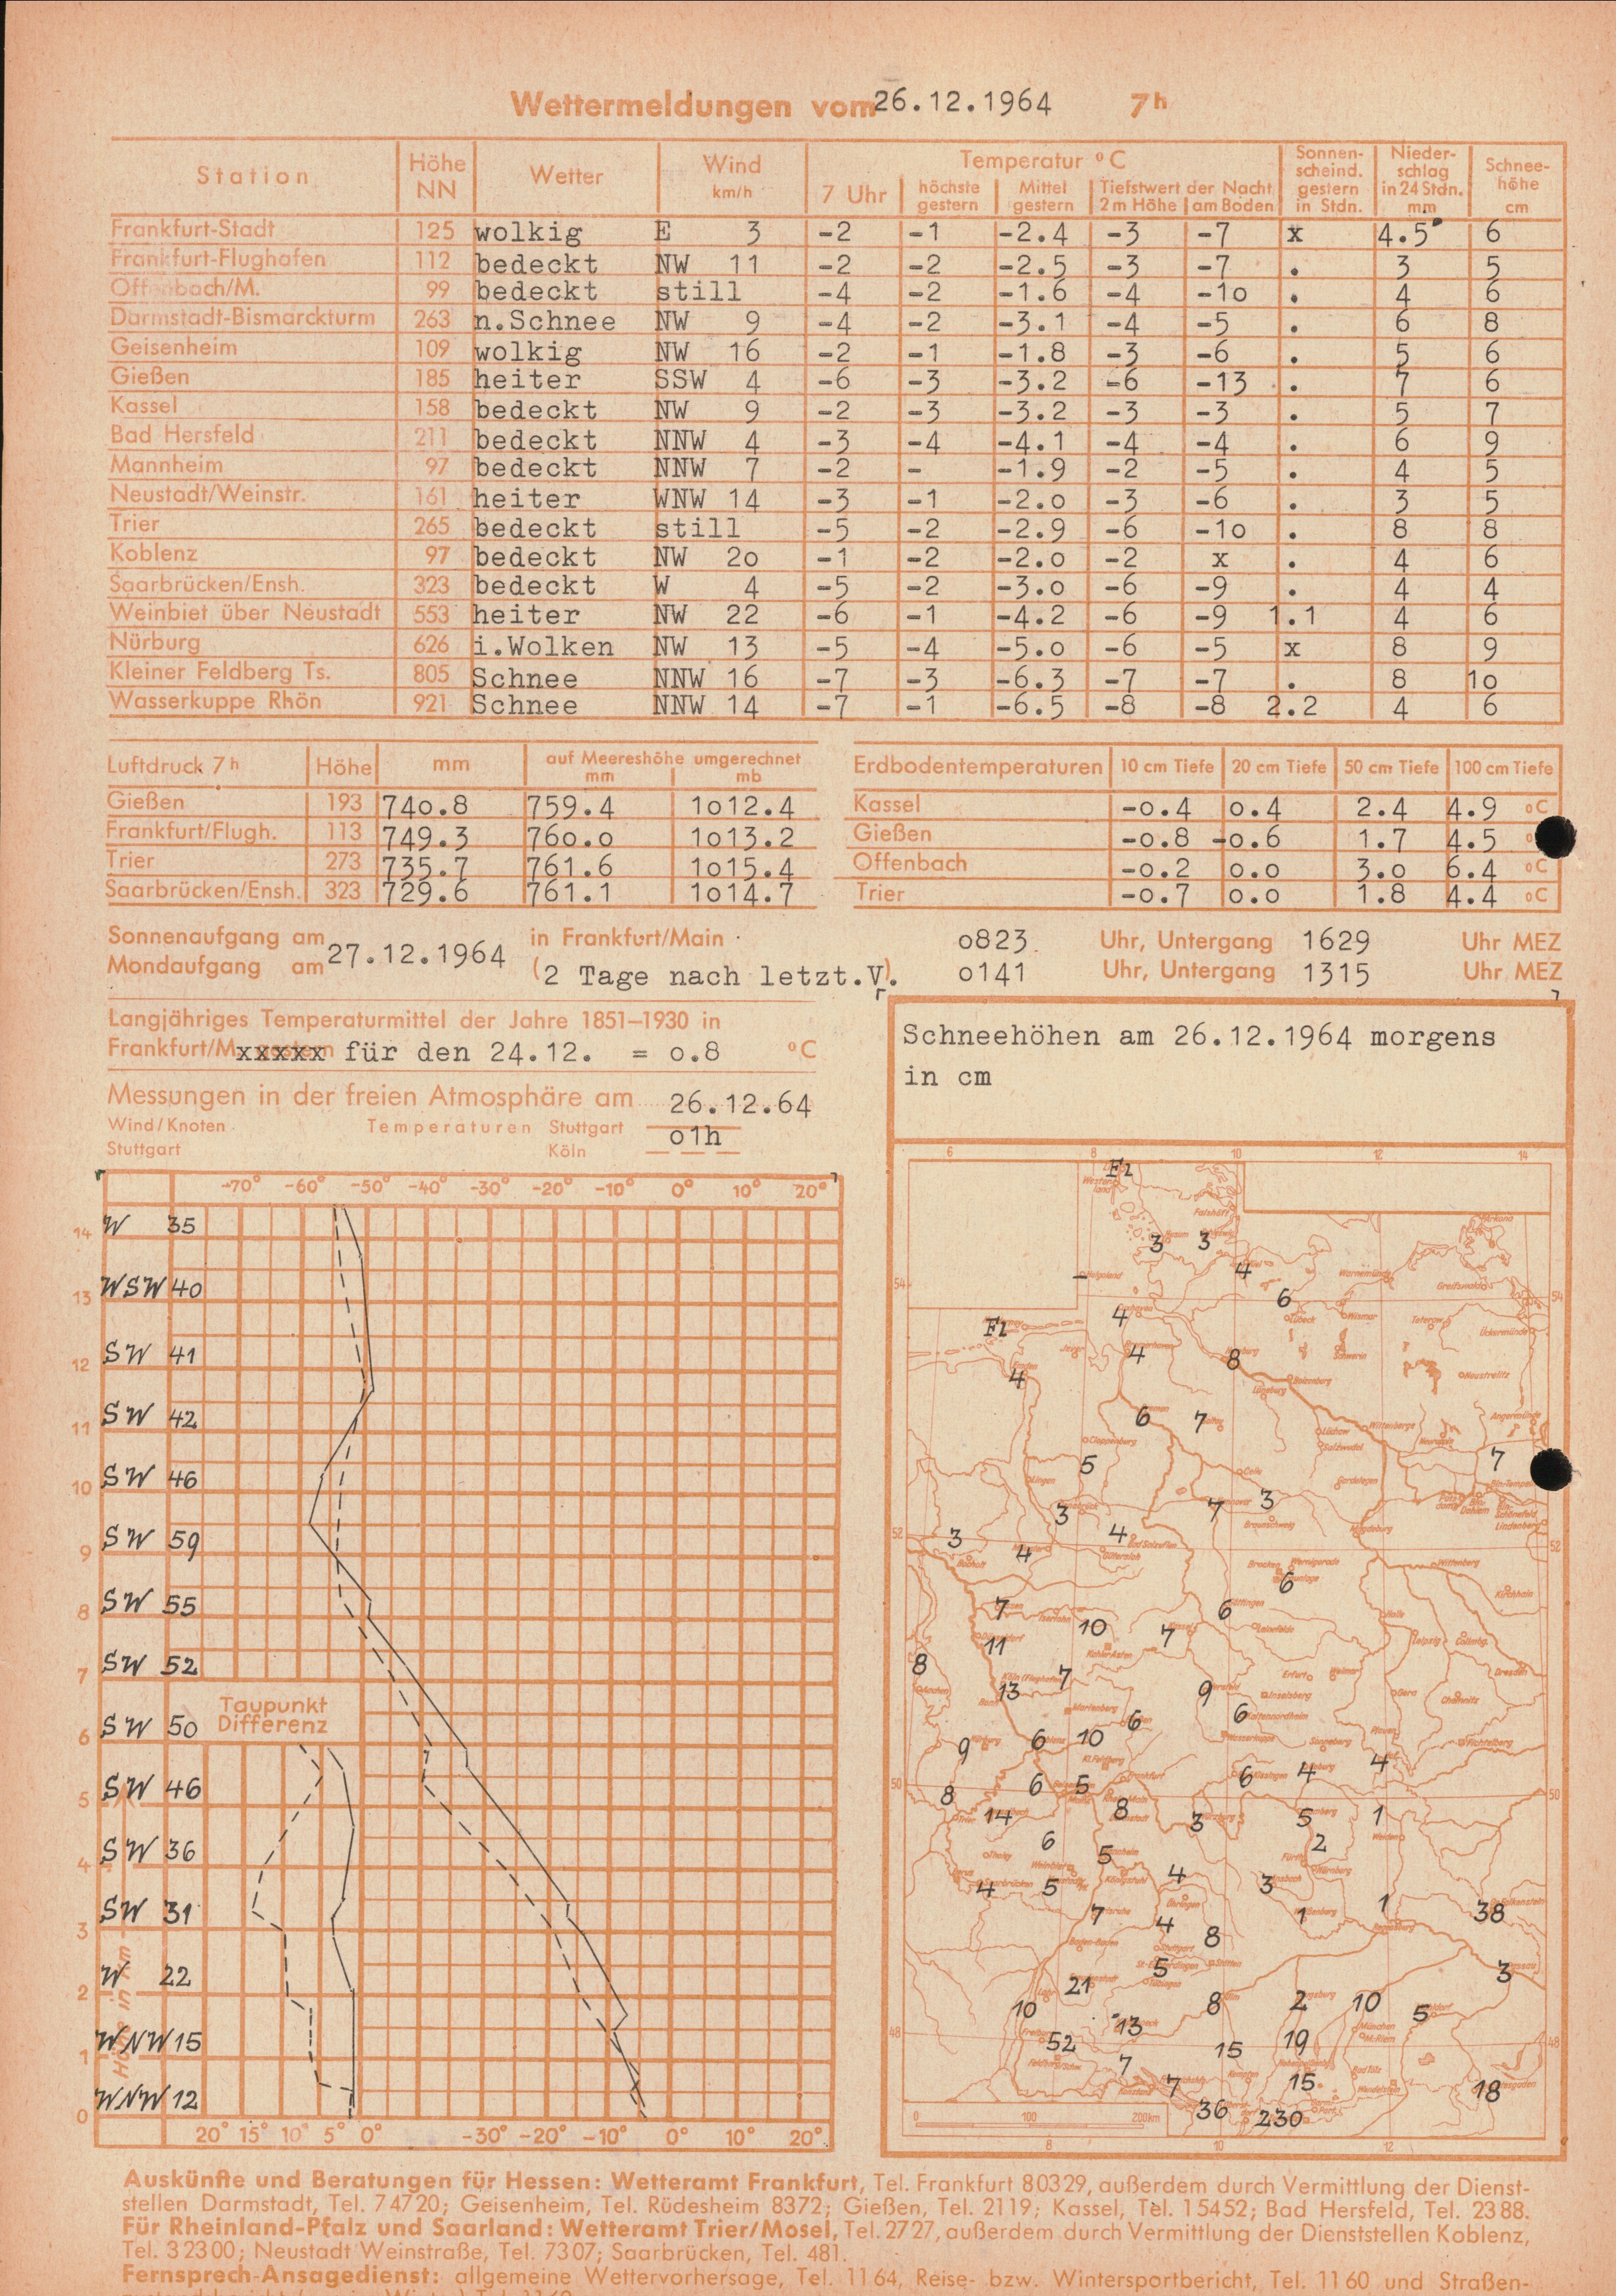 Wettermeldungen vom 26.12.1964 7h
Station Höhe NN Wetter Wind km/h Temperatur °C Sonnen-scheind. gestern in Stdn. Nieder-schlag in 24 Stdn. mm Schnee-höhe cm
7 Uhr höchste gestern Mittel gestern Tiefstwert der Nacht 2 m Höhe am Boden
Frankfurt-Stadt 125 wolkig E 3 -2 -1 -2.4 -3 -7 x 4.5 6
Frankfurt-Flughafen 112 bedeckt NW 11 -2 -2 -2.5 -3 -7 . 3 5
Offenbach/M. 99 bedeckt still -4 -2 -1.6 -4 -1o . 4 6
Darmstadt-Bismarckturm 263 n.Schnee NW 9 -4 -2 -3.1 -4 -5 . 6 8
Geisenheim 109 wolkig NW 16 -2 -1 -1.8 -3 -6 . 5 6
Gießen 185 heiter SSW 4 -6 -3 -3.2 -6 -13 . 7 6
Kassel 158 bedeckt NW 9 -2 -3 -3.2 -3 -3 . 5 7
Bad Hersfeld 211 bedeckt NNW 4 -3 -4 -4.1 -4 -4 . 6 9
Mannheim 97 bedeckt NNW 7 -2 - -1.9 -2 -5 . 4 5
Neustadt/Weinstr. 161 heiter WNW 14 -3 -1 -2.o -3 -6 . 3 5
Trier 265 bedeckt still -5 -2 -2.9 -6 -1o . 8 8
Koblenz 97 bedeckt NW 2o -1 -2 -2.o -2 x . 4 6
Saarbrücken/Ensh. 323 bedeckt W 4 -5 -2 -3.o -6 -9 . 4 4
Weinbiet über Neustadt 553 heiter NW 22 -6 -1 -4.2 -6 -9 1.1 4 6
Nürburg 626 i.Wolken NW 13 -5 -4 -5.o -6 -5 x 8 9
Kleiner Feldberg Ts. 805 Schnee NNW 16 -7 -3 -6.3 -7 -7 . 8 1o
Wasserkuppe Rhön 921 Schnee NNW 14 -7 -1 -6.5 -8 -8 2.2 4 6
Luftdruck 7h Höhe mm auf Meereshöhe umgerechnet mm mb
Gießen 193 74o.8 759.4 1o12.4
Frankfurt/Flugh. 113 749.3 76o.o 1o13.2
Trier 273 735.7 761.6 1o15.4
Saarbrücken/Ensh. 323 729.6 761.1 1o14.7
Erdbodentemperaturen 10 cm Tiefe 20 cm Tiefe 50 cm Tiefe 100 cm Tiefe
Kassel -o.4 o.4 2.4 4.9 °C
Gießen -o.8 -o.6 1.7 4.5
Offenbach -o.2 o.o 3.o 6.4 °C
Trier -o.7 o.o 1.8 4.4 °C
Sonnenaufgang am 27.12.1964 in Frankfurt/Main o823 Uhr, Untergang 1629 Uhr MEZ
Mondaufgang am (2 Tage nach letzt.V). o141 Uhr, Untergang 1315 Uhr MEZ
Langjähriges Temperaturmittel der Jahre 1851–1930 in
Frankfurt/M. xxxxx für den 24.12. = o.8 °C
Messungen in der freien Atmosphäre am 26.12.64
Wind/Knoten Temperaturen Stuttgart o1h
Stuttgart Köln
-70° -60° -50° -40° -30° -20° -10° 0° 10° 20°
14 W 35
13 WSW 40
12 SW 41
11 SW 42
10 SW 46
9 SW 59
8 SW 55
7 SW 52
Taupunkt
6 SW 50 Differenz
5 SW 46
4 SW 36
3 SW 31
2 W 22
1 WNW 15
0 WNW 12
Höhe in km
20° 15° 10° 5° 0° -30° -20° -10° 0° 10° 20°
Schneehöhen am 26.12.1964 morgens
in cm
6 8 10 12 14
Fl
3 3
4
54 54
6
Fl 4
4 8
4
6 7
5 7
3 7 3
52 3 4 4 52
6
7 10 7 6
11
8 13 7 9
6 6
9 6 10
6 4 4
50 8 6 5 50
14 8 3 5 1
6 5 2
4 5 4 3
7 4 1 1 38
8
5 3
21
10 13 8 2 10 5
48 52 15 19 48
7 7 15 18
36 230
0 100 200km
8 10 12
Auskünfte und Beratungen für Hessen: Wetteramt Frankfurt, Tel. Frankfurt 80329, außerdem durch Vermittlung der Dienst-
stellen Darmstadt, Tel. 74720; Geisenheim, Tel. Rüdesheim 8372; Gießen, Tel. 2119; Kassel, Tel. 15452; Bad Hersfeld, Tel. 2388.
Für Rheinland-Pfalz und Saarland: Wetteramt Trier/Mosel, Tel. 2727, außerdem durch Vermittlung der Dienststellen Koblenz,
Tel. 32300; Neustadt Weinstraße, Tel. 7307; Saarbrücken, Tel. 481.
Fernsprech-Ansagedienst: allgemeine Wettervorhersage, Tel. 1164, Reise- bzw. Wintersportbericht, Tel. 1160 und Straßen-